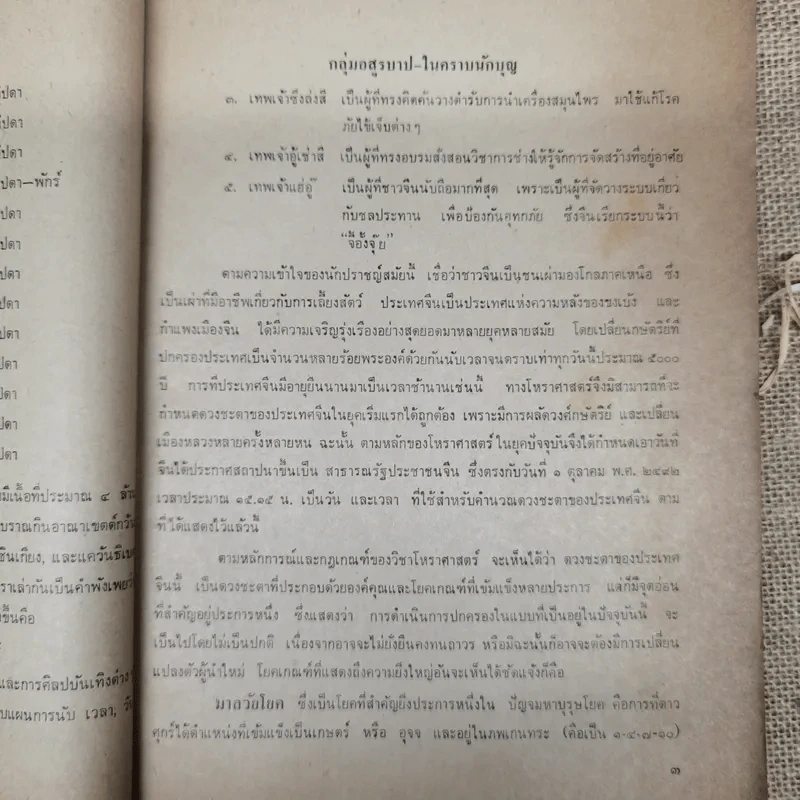 ปดา
ปดา
ปดา
ปดา—พักร์
ปดา
ปดา
ปดา
ปดา
ปดา
ปดา
ปดา
ปดา
มีเนื้อที่ประมาณ ๔ ล้าน
บราณกินอาณาเขตต์กว้
ซินเกียง, และแคว้นธิเบ
ราเล่ากันเป็นคำพังเพยว
ขึ้นคือ
และการศิลปบันเทิงต่างๆ
บแผนการนับ เวลา, วั
กลุ่มอสูรบาป-ในคราบนักบุญ
๓. เทพเจ้าซึงล่งสี เป็นผู้ที่ทรงคิดค้นวางตำรับการนำเครื่องสมุนไพร มาใช้แก้โรค
ภัยไข้เจ็บต่างๆ
๔. เทพเจ้าอู้เช่าสี เป็นผู้ที่ทรงอบรมสั่งสอนวิชาการช่างให้รู้จักการจัดสร้างที่อยู่อาศัย
๕. เทพเจ้าแฮ่อู๊ เป็นผู้ที่ชาวจีนนับถือมากที่สุด เพราะเป็นผู้ที่จัดวางระบบเกี่ยว
กับชลประทาน เพื่อป้องกันอุทกภัย ซึ่งจีนเรียกระบบนี้ว่า
“จี้อั้งจุ๊ย”
ตามความเข้าใจของนักปราชญ์สมัยนี้ เชื่อว่าชาวจีนเป็นชนเผ่ามองโกลภาคเหนือ ซึ่ง
เป็นเผ่าที่มีอาชีพเกี่ยวกับการเลี้ยงสัตว์ ประเทศจีนเป็นประเทศแห่งความหลังของขงเบ้ง และ
กำแพงเมืองจีน ได้มีความเจริญรุ่งเรืองอย่างสุดยอดมาหลายยุคหลายสมัย โดยเปลี่ยนกษัตริย์ที่
ปกครองประเทศเป็นจำนวนหลายร้อยพระองค์ด้วยกันนับเวลาจนตราบเท่าทุกวันนี้ประมาณ ๕๐๐๐
ปี การที่ประเทศจีนมีอายุยืนนานมาเป็นเวลาช้านานเช่นนี้ ทางโหราศาสตร์จึงมิสามารถที่จะ
กำหนดดวงชะตาของประเทศจีนในยุคเริ่มแรกได้ถูกต้อง เพราะมีการผลัดวงศ์กษัตริย์ และเปลี่ยน
เมืองหลวงหลายครั้งหลายหน ฉะนั้น ตามหลักของโหราศาสตร์ในยุคปัจจุบันจึงได้กำหนดเอาวันที่
จีนได้ประกาศสถาปนาขึ้นเป็น สาธารณรัฐประชาชนจีน ซึ่งตรงกับวันที่ ๑ ตุลาคม พ.ศ. ๒๔๙๒
เวลาประมาณ ๑๕.๑๕ น. เป็นวัน และเวลา ที่ใช้สำหรับคำนวณดวงชะตาของประเทศจีน ตาม
ที่ได้แสดงไว้แล้วนี้
ตามหลักการณ์และกฎเกณฑ์ของวิชาโหราศาสตร์ จะเห็นได้ว่า ดวงชะตาของประเทศ
จีนนี้ เป็นดวงชะตาที่ประกอบด้วยองค์คุณและโยคเกณฑ์ที่เข้มแข็งหลายประการ แต่ก็มีจุดอ่อน
ที่สำคัญอยู่ประการหนึ่ง ซึ่งแสดงว่า การดำเนินการปกครองในแบบที่เป็นอยู่ในปัจจุบันนี้ จะ
เป็นไปโดยไม่เป็นปกติ เนื่องจากอาจจะไม่ยั่งยืนคงทนถาวร หรือมิฉะนั้นก็อาจจะต้องมีการเปลี่ยน
แปลงตัวผู้นำใหม่ โยคเกณฑ์ที่แสดงถึงความยิ่งใหญ่อันจะเห็นได้ชัดแจ้งก็คือ
มาลวัยโยค ซึ่งเป็นโยคที่สำคัญยิ่งประการหนึ่งใน ปัญจมหาบุรุษโยค คือการที่ดาว
ศุกร์ได้ตำแหน่งที่เข้มแข็งเป็นเกษตร์ หรือ อุจจ และอยู่ในภพเกนทระ (คือเป็น ๑-๔-๗-๑๐)
๓